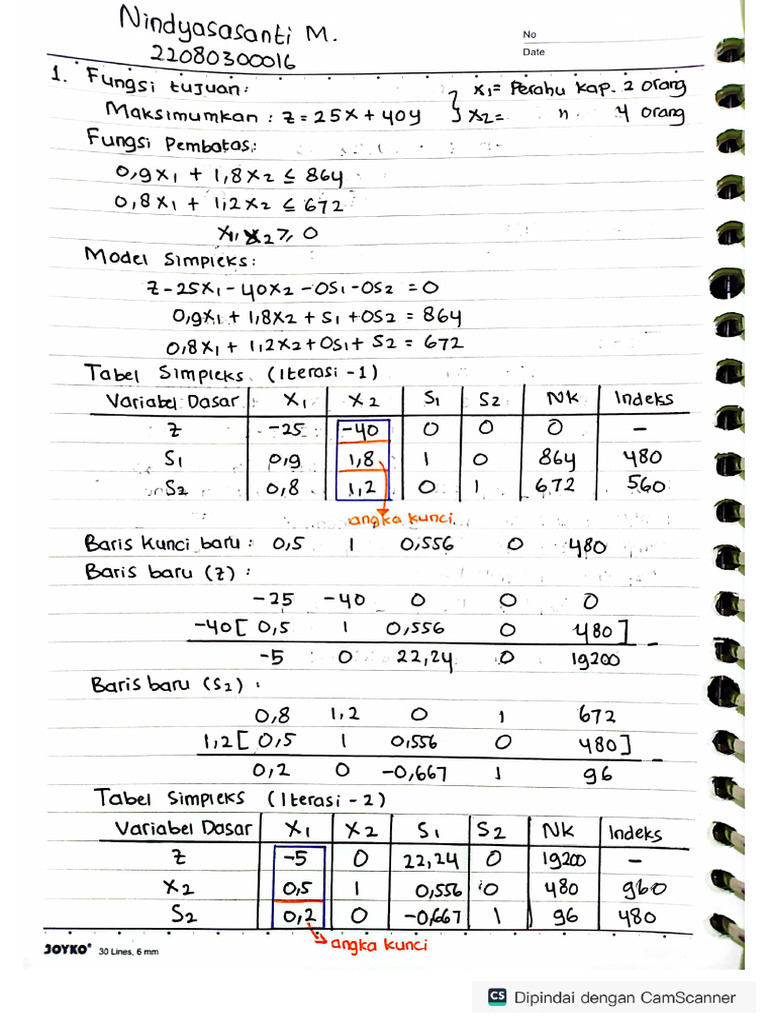 Nindyasasanti M.
22080300016
No
Date
1. Fungsi tujuan:
Maksimumkan : Z = 25X + 40Y
X1 = Perahu kap. 2 orang
X2 = " 4 orang
Fungsi Pembatas:
0,9X1 + 1,8X2 ≤ 864
0,8X1 + 1,2X2 ≤ 672
X1, X2 ≥ 0
Model Simpleks:
Z - 25X1 - 40X2 - 0S1 - 0S2 = 0
0,9X1 + 1,8X2 + S1 + 0S2 = 864
0,8X1 + 1,2X2 + 0S1 + S2 = 672
Tabel Simpleks (Iterasi - 1)
Variabel Dasar X1 X2 S1 S2 NK Indeks
Z -25 -40 0 0 0 -
S1 0,9 1,8 1 0 864 480
S2 0,8 1,2 0 1 672 560
angka kunci
Baris Kunci baru : 0,5 1 0,556 0 480
Baris baru (Z) :
-25 -40 0 0 0
-40 [ 0,5 1 0,556 0 480 ] -
-5 0 22,24 0 19200
Baris baru (S2) :
0,8 1,2 0 1 672
1,2 [ 0,5 1 0,556 0 480 ] -
0,2 0 -0,667 1 96
Tabel Simpleks (Iterasi - 2)
Variabel Dasar X1 X2 S1 S2 NK Indeks
Z -5 0 22,24 0 19200 -
X2 0,5 1 0,556 0 480 960
S2 0,2 0 -0,667 1 96 480
angka kunci
JOYKO® 30 Lines, 6 mm
CS Dipindai dengan CamScanner